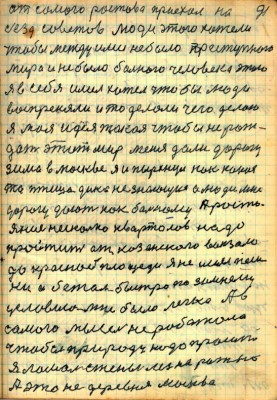 от самого ростова приехал на 91
сезд советов Люди этого хотели
чтобы между ими небыло преступного
мира и небыло больного человека этого
я в себя имел хотел чтобы люди
и то делали чего делаю
я моя идея такая чтобы не
этот мир меня дали дорогу
зима в москве я и парензи как
та птица дика не знающая а люди мне
дорогу дают как больному А просто
Яни несколько квартолов надо
пройти от казанского вокзала
до красной площеди я не шел
ни а бежал быстро по зимнему
условию мне было легко А в
самого мысел не работала
чтобы природу надо
Я
А это не деревня москва